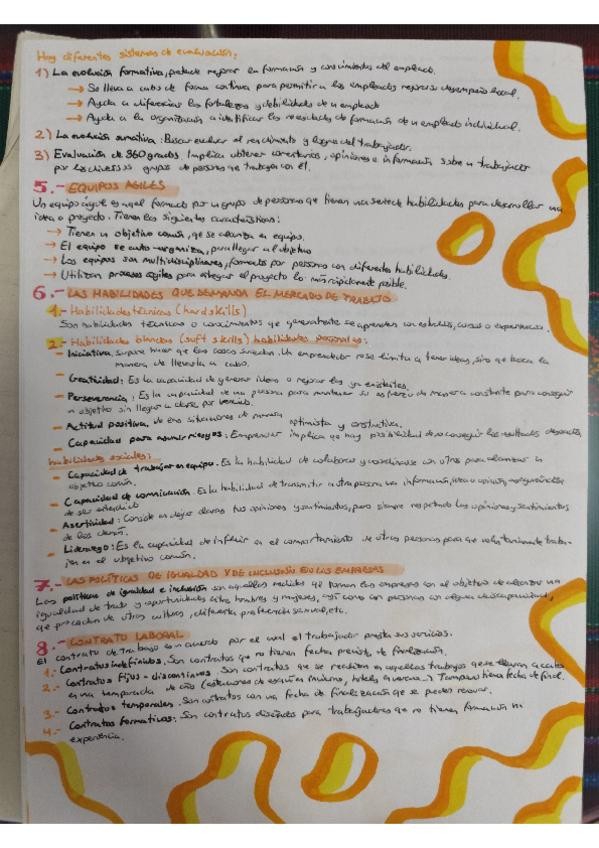 Hay diferentes sistemas de evaluación:
1) La evolución formativa, pretende mejorar la formación y conocimientos del empleado.
→ Se lleva a cabo de forma continua para permitir a los empleados mejorar su desempeño laboral.
→ Ayuda a diferenciar las fortalezas y debilidades de un empleado
→ Ayuda a la organización a identificar los resultados de formación de un empleado individual.
2) La evolución sumativa: Buscar evaluar el rendimiento y logro del trabajador.
3) Evaluación de 360 grados. Implica obtener comentarios, opiniones e información sobre un trabajador
por los diversos grupos de personas que trabajan con él.
5.- EQUIPOS AGILES
Un equipo ágil es aquel formado por un grupo de personas que tienen una serie de habilidades para desarrollar una
idea o proyecto. Tienen las siguientes características:
→ Tienen un objetivo común, que se alcanza en equipo.
→ El equipo se auto-organiza, para llegar al objetivo
→ Los equipos son multidisciplinares, formados por personas con diferentes habilidades.
→ Utilizan procesos ágiles para entregar el proyecto lo más rápidamente posible.
6.- LAS HABILIDADES QUE DEMANDA EL MERCADO DE TRABAJO
1.- Habilidades técnicas (hard skills)
Son habilidades técnicas o conocimientos que generalmente se aprenden con estudios, cursos o experiencias.
2.- Habilidades blandas (soft skills) habilidades personales:
- Iniciativa, supone hacer que las cosas sucedan. Un emprendedor no se limita a tener ideas, sino que busca la
manera de llevarla a cabo.
- Creatividad: Es la capacidad de generar ideas o mejorar las ya existentes.
- Perseverancia: Es la capacidad de una persona para mantener su esfuerzo de manera constante para conseguir
un objetivo sin llegar a darse por vencido.
- Actitud positiva, de ena situaciones de manera optimista y constructiva.
- Capacidad para asumir riesgos: Emprender implica que hay posibilidad de no conseguir los resultados deseados.
habilidades sociales:
- Capacidad de trabajar en equipo. Es la habilidad de colaborar y coordinarse con otros para alcanzar un
objetivo común.
- Capacidad de comunicación. Es la habilidad de transmitir a otra persona una información, idea u opinión
de ser entendido
- Asertividad: Consiste en dejar claras tus opiniones y sentimientos, pero siempre respetando las opiniones y sentimientos
de los demás.
- Liderazgo: Es la capacidad de influir en el comportamiento de otras personas para que voluntariamente traba-
jen en el objetivo común.
7.- LAS POLÍTICAS DE IGUALDAD Y DE INCLUSIÓN EN LAS EMPRESAS
Las políticas de igualdad e inclusión son aquellas medidas que toman las empresas con el objetivo de alcanzar una
igualdad de trato y oportunidades entre hombres y mujeres, así como con personas con alguna discapacidad,
que procedan de otras culturas, diferente preferencia sexual, etc.
8.- CONTRATO LABORAL
El contrato de trabajo es un acuerdo por el cual el trabajador presta sus servicios.
1.- Contratos indefinidos. Son contratos que no tienen fecha prevista de finalización.
2.- Contratos fijos-discontinuos. Son contratos que se realizan en aquellos trabajos que se llevan a cabo
en una temporada de año (estaciones de esquí en invierno, hoteles en verano...) Tampoco tiene fecha de final.
3.- Contratos temporales. Son contratos con una fecha de finalización que se pueden renovar.
4.- Contratos formativos: Son contratos diseñados para trabajadores que no tienen formación ni
experiencia.